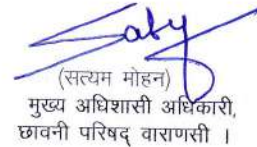 (सत्यम मोहन)
मुख्य अधिशासी अधिकारी,
छावनी परिषद् वाराणसी ।